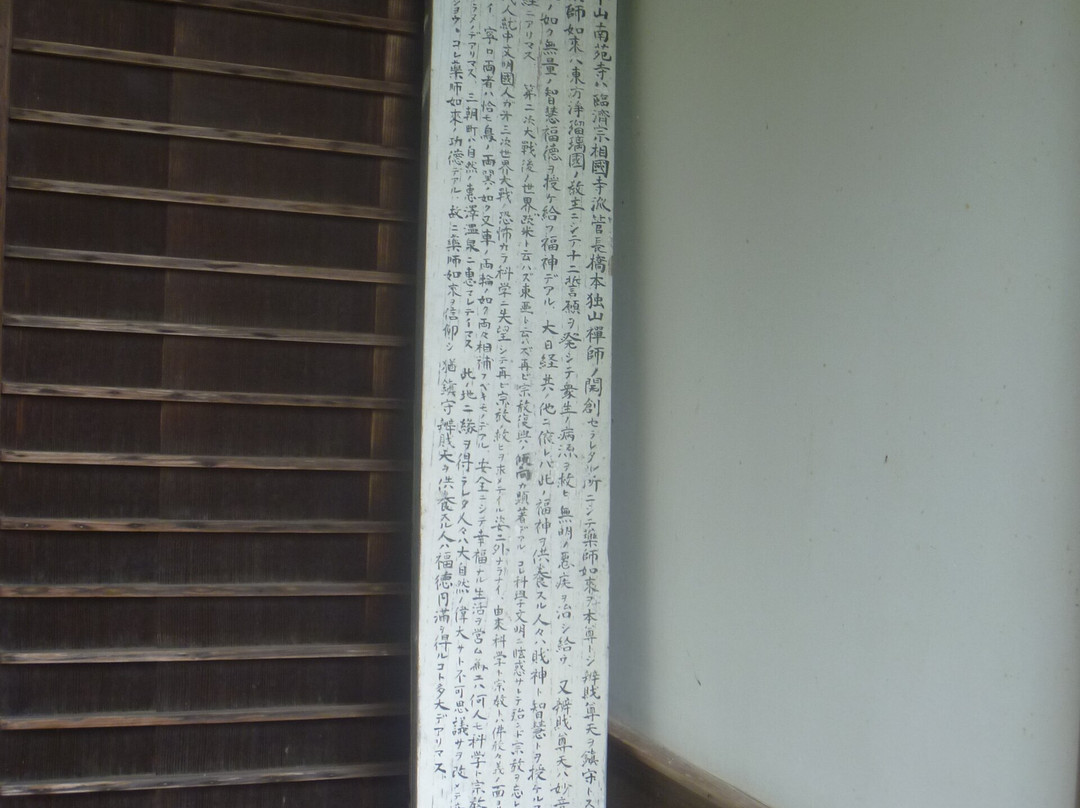 山南苑寺ハ臨済宗相國寺派管長橋本独山禪師ノ開創セラレタル所ニシテ薬師如来ヲ本尊トシ辨財尊天ヲ鎮守トス
師如来ハ東方浄瑠璃國ノ教主ニシテ十二誓願ヲ発シテ衆生ノ病源ヲ救ヒ無明ノ悪疾ヲ治シ給ウ 又辨財尊天ハ妙音
ノ如ク無量ノ智慧福徳ヲ授ケ給フ福神デアル 大日経其ノ他ニ依レバ此ノ福神ヲ供養スル人々ハ財神ト智慧トヲ授ケル
経ニアリマス 第二次大戦後ノ世界欧米ト云ハズ東亜ト云ハズ再ビ宗教復興ノ傾向ガ顕著デアル コレ科学文明ニ眩惑サレテ殆ンド宗教ヲ忘レ
人就中文明國人ガ第三次世界大戦ノ恐怖カラ科学ニ失望シテ再ビ宗教ノ救ヒヲ求メテイル姿ニ外ナラナイ、由来科学ト宗教トハ
イ 寧ロ両者ハ恰モ鳥ノ両翼ノ如ク又車ノ両輪ノ如ク両々相補フベキモノデアル 安全ニシテ幸福ナル生活ヲ営ム為ニハ何人モ科学ト宗教
デアリマス、三朝町ハ自然ノ恵澤温泉ニ恵マレテイマス 此ノ地ニ縁ヲ得ラレタ人々ハ大自然ノ偉大サト不可思議サヲ
ショウ。コレ薬師如来ノ功徳デアル 故ニ薬師如来ヲ信仰シ 猶鎮守辨財天ヲ供養スル人ハ福徳円満ヲ得ルコト多大デアリマス